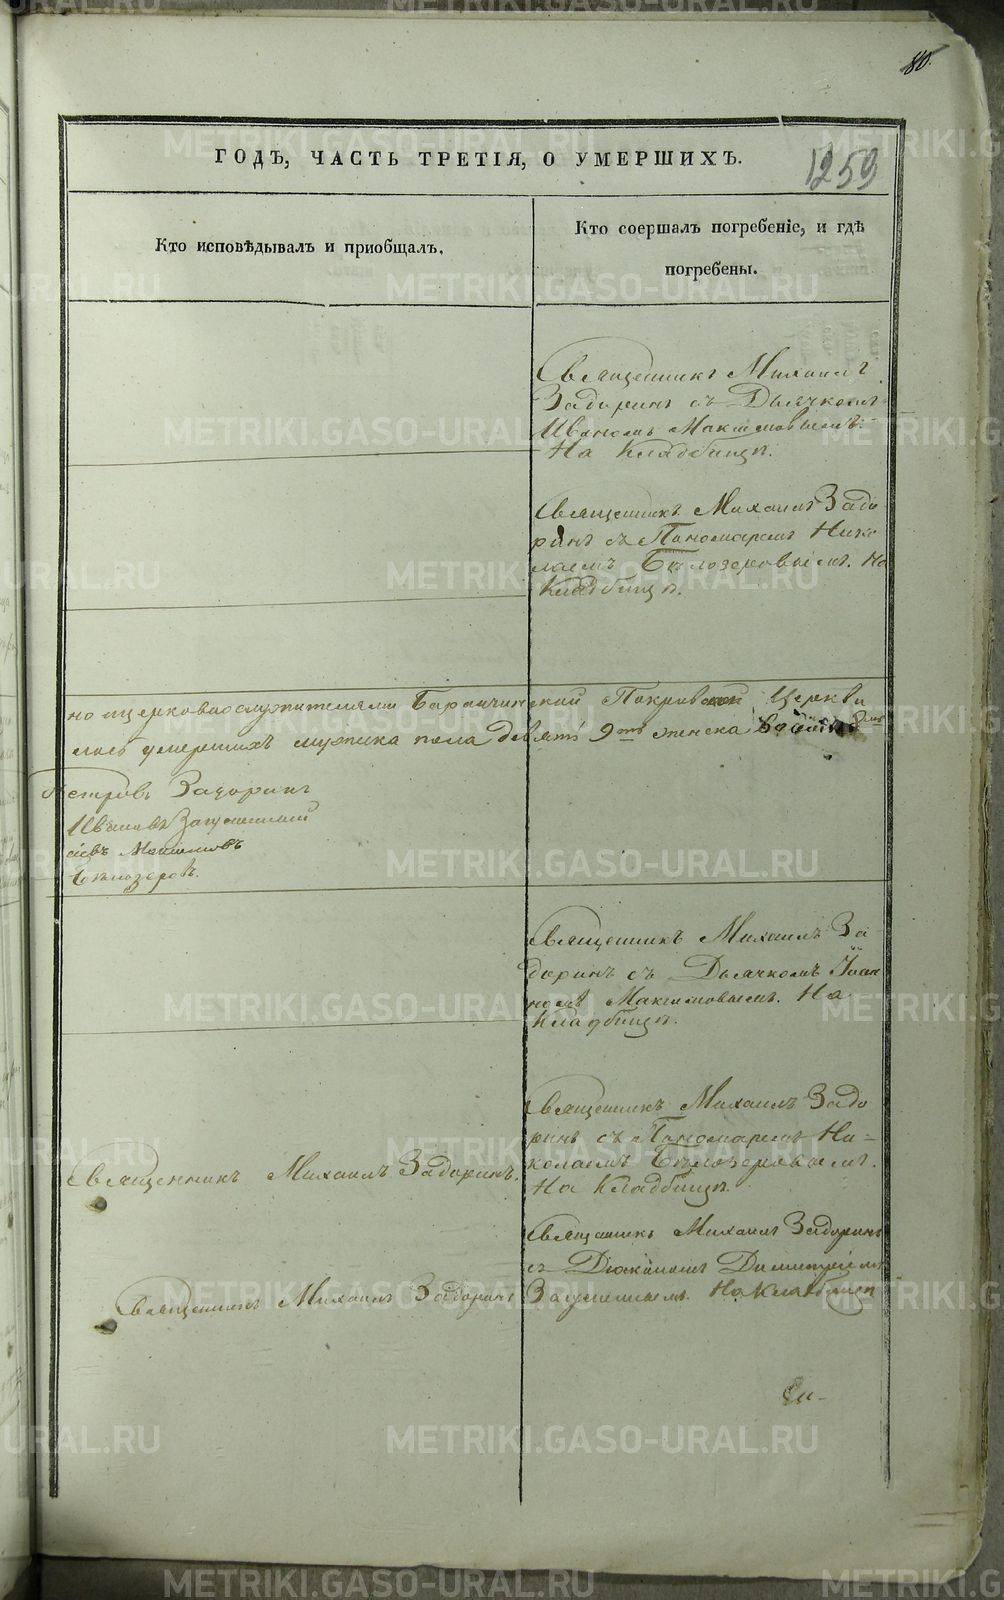 80.
1259
ГОДЪ, ЧАСТЬ ТРЕТІЯ, О УМЕРШИХЪ.
Кто исповѣдывалъ и приобщалъ.
Кто соершалъ погребеніе, и гдѣ
погребены.
Священникъ Михаилъ
Задоринъ съ Дьячкомъ
Иваномъ Максимовымъ.
На Кладбищѣ.
Священникъ Михаилъ Задо
ринъ съ Пономаремъ Нико
лаемъ Бѣлозеровымъ. На
Кладбищѣ.
но церковнослужителями Баранчинской Покровской Церкви
умершихъ мужска пола девять 9ть женска
Петровъ Задоринъ
Ивановъ
Максимовъ
Бѣлозеровъ.
Священникъ Михаилъ За-
доринъ съ Дьячкомъ Іоан
номъ Максимовымъ. На
Кладбищѣ.
Священникъ Михаилъ Задо
ринъ съ Пономаремъ Ни-
колаемъ Бѣлозеровымъ.
На Кладбищѣ.
Священникъ Михаилъ Задоринъ.
Священникъ Михаилъ Задоринъ
съ Діакономъ Димитріемъ
На Кладбищѣ
Священникъ Михаилъ Задоринъ
METRIKI.GASO-URAL.RU